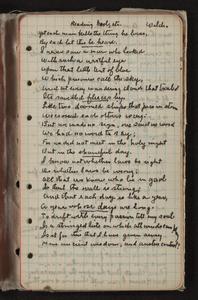 Reading Gaol, etc. Wilde.
Yet each man kills the thing he loves,
By each let this be heard.
I never saw a man who looked
With such a wistful eye
Upon that little tent of blue
Which prisoners call the sky,
And at every wandering cloud that trailed
Its ravelled fleeces by.
Like two doomed ships that pass in storm
We crossed each other's way:
But we made no sign, we said no word
We had no word to say;
For we did not meet in the holy night
But in the shameful day.
I know not whether laws be right
Or whether laws be wrong;
All that we know who lie in gaol
Is that the wall is strong;
And that each day is like a year,
A year whose days are long.
To drift with every passion till my soul
Is a stringed lute on which all winds can play
Is it for this that I have given away
Mine ancient wisdom, and austere control?